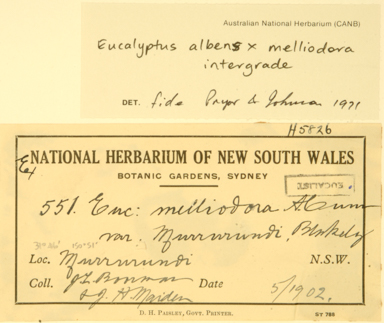 Australian National Herbarium (CANB)
Eucalyptus albens x melliodora
intergrade
DET. fide Pryor & Johnson 1971
H5826
Ex
NATIONAL HERBARIUM OF NEW SOUTH WALES
BOTANIC GARDENS, SYDNEY
EUCALIST
551. Euc: melliodora A Cunn
var. Murrurundi, Blakely
31° 46' 150° 51'
Loc. Murrurundi N.S.W.
Coll. J L Boorman Date
& J. H Maiden 5/1902.
D. H. PAISLEY, GOVT. PRINTER. ST 785